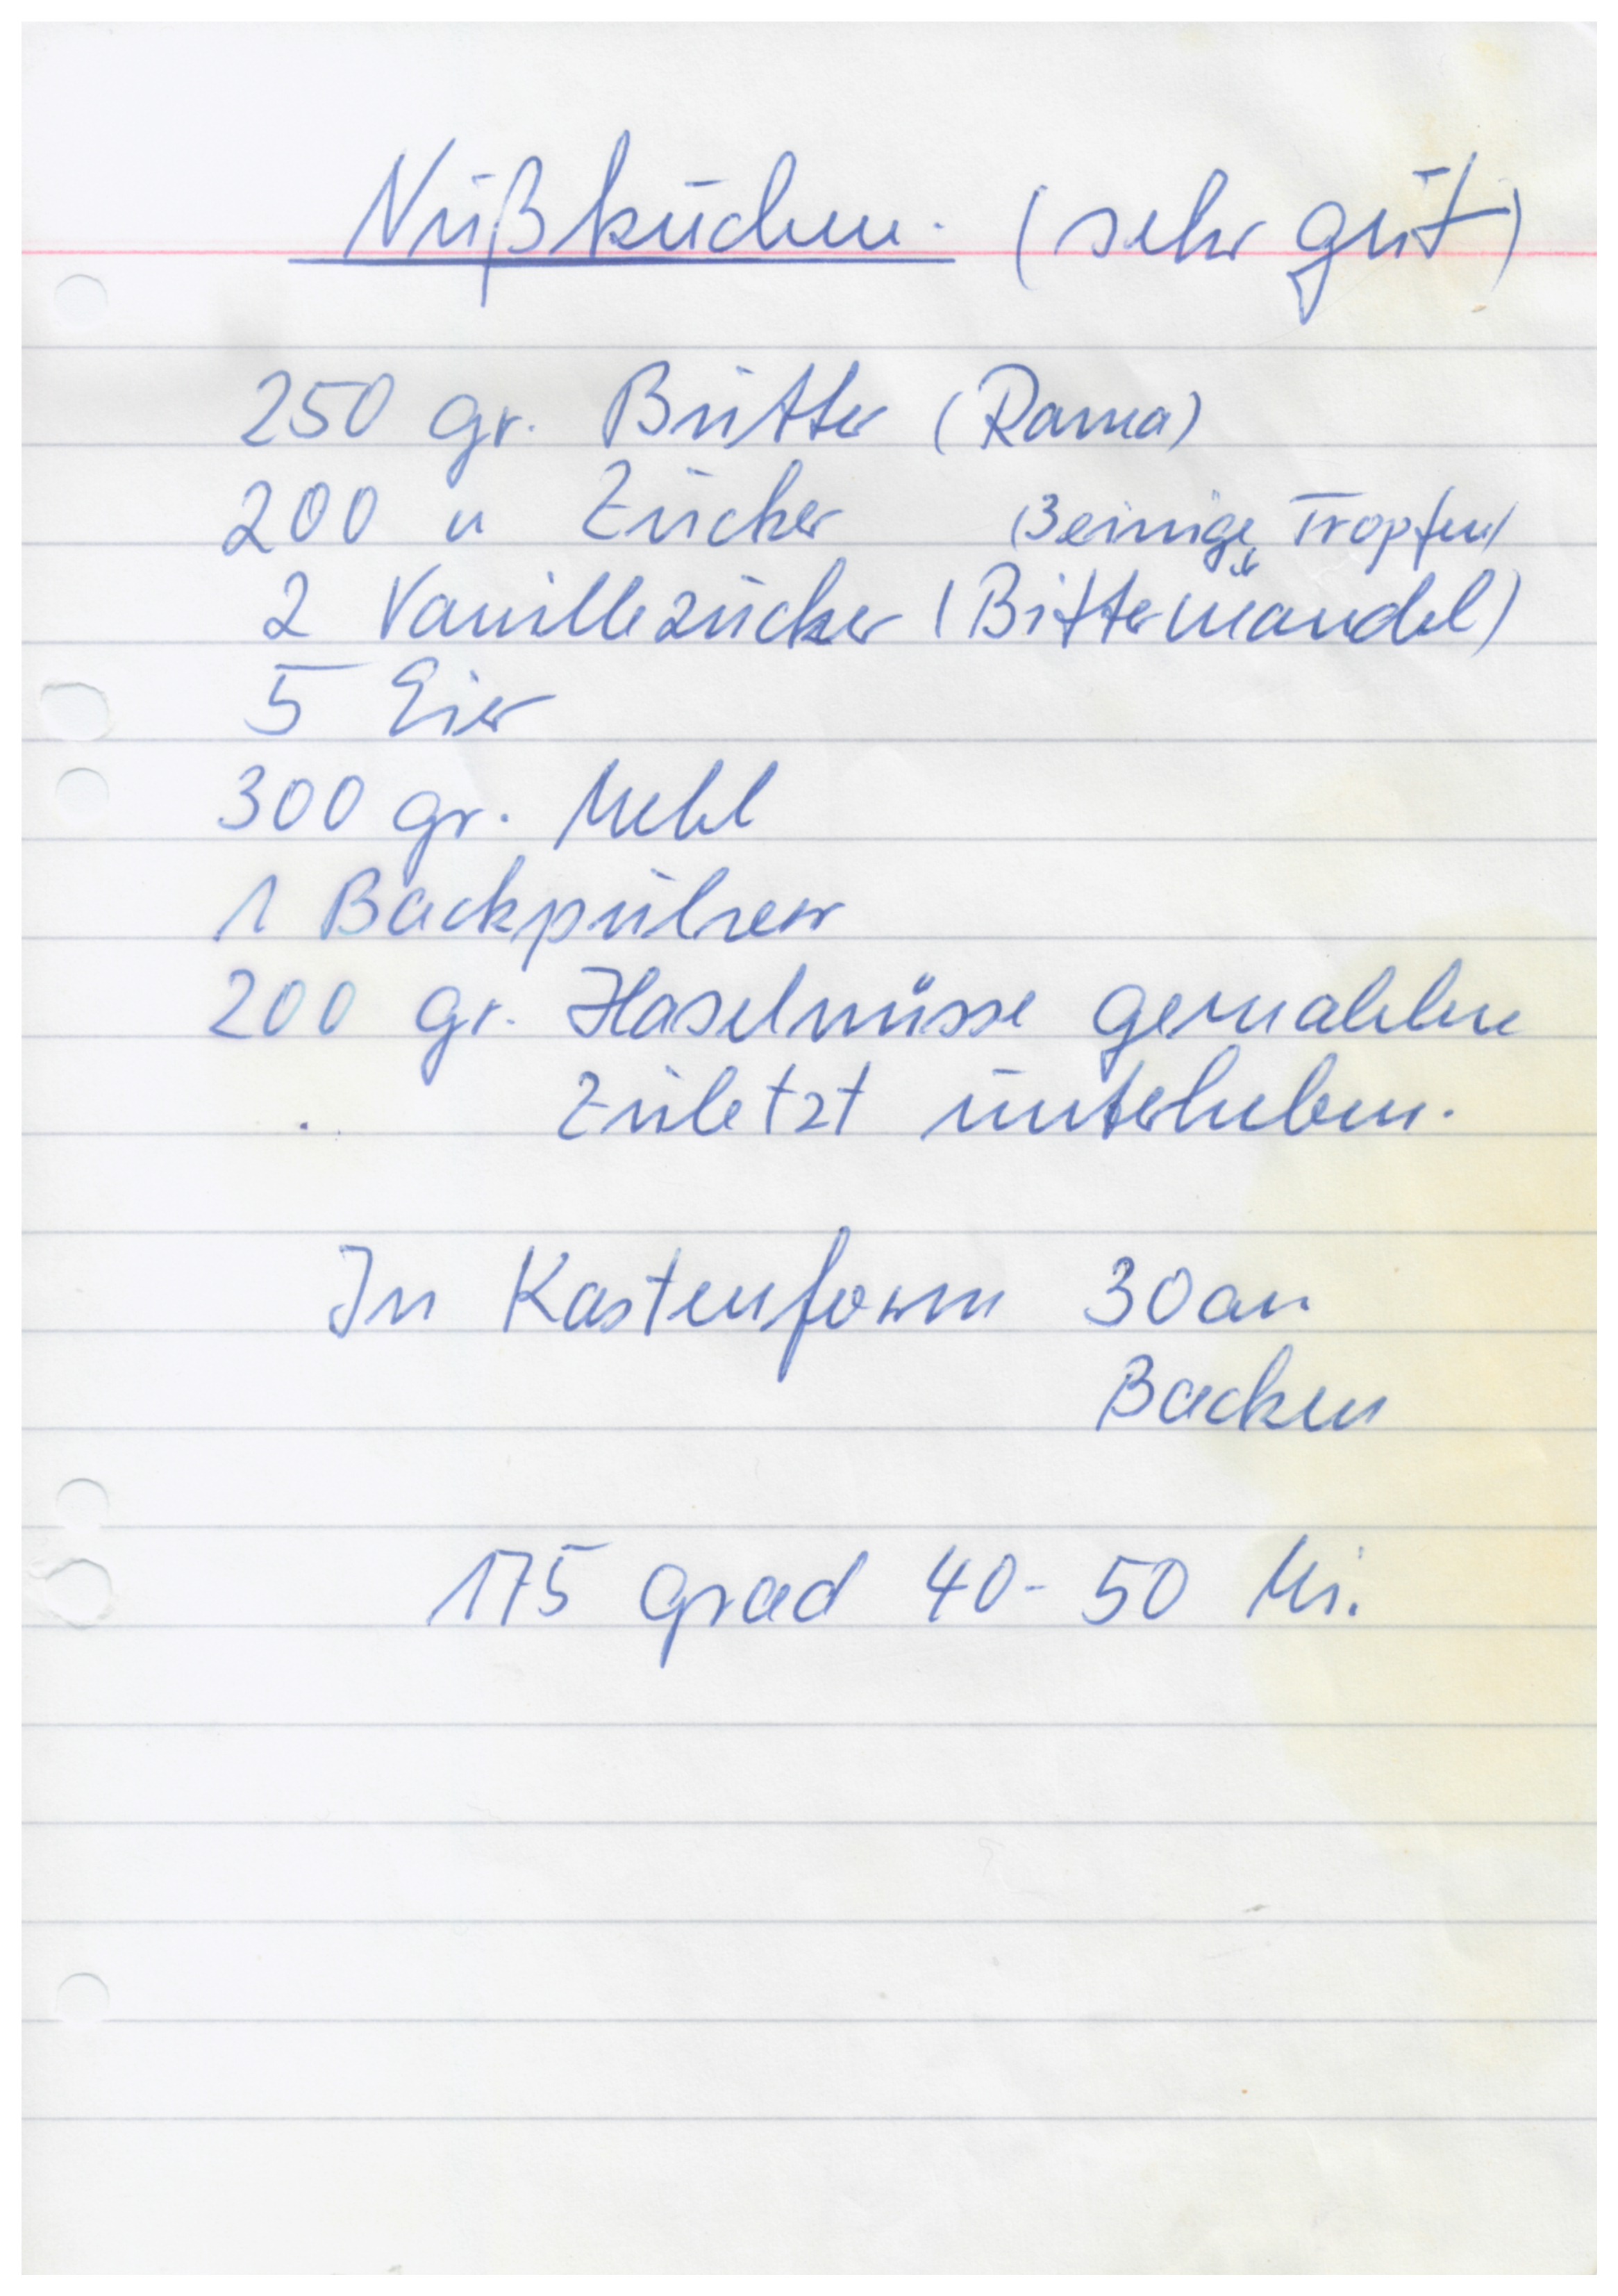 Nußkuchen. (sehr gut)
250 gr. Butter (Rama)
200 " Zucker (3 einige Tropfen)
2 Vanillezucker (Bittermandel)
5 Eier
300 gr. Mehl
1 Backpulver
200 gr. Haselnüsse gemahlen
Zuletzt unterheben.
In Kastenform 30cm
Backen
175 Grad 40-50 Mi.